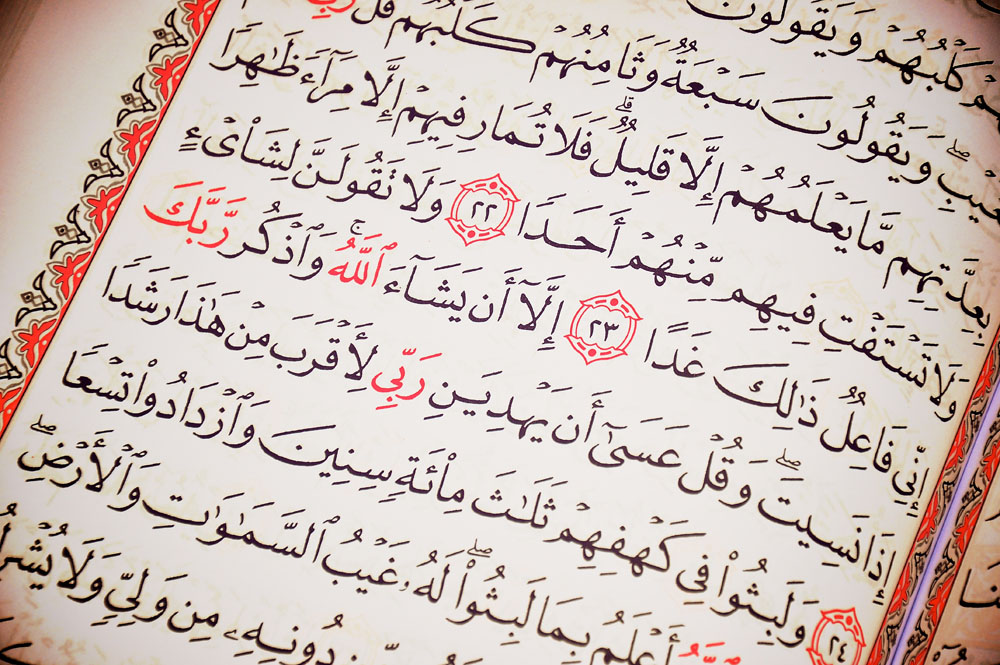 كَلْبُهُمْ وَيَقُولُونَ
وَيَقُولُونَ سَبْعَةٌ وَثَامِنُهُمْ كَلْبُهُمْ قُل
بِعِدَّتِهِم مَّا يَعْلَمُهُمْ إِلَّا قَلِيلٌ ۗ فَلَا تُمَارِ فِيهِمْ إِلَّا مِرَآءً ظَٰهِرًا
وَلَا تَسْتَفْتِ فِيهِم مِّنْهُمْ أَحَدًا ٢٢ وَلَا تَقُولَنَّ لِشَا۟ىْءٍ
إِنِّى فَاعِلٌ ذَٰلِكَ غَدًا ٢٣ إِلَّآ أَن يَشَآءَ ٱللَّهُ ۚ وَٱذْكُر رَّبَّكَ
إِذَا نَسِيتَ ۖ وَقُلْ عَسَىٰٓ أَن يَهْدِيَنِ رَبِّى لِأَقْرَبَ مِنْ هَٰذَا رَشَدًا
٢٤ وَلَبِثُوا۟ فِى كَهْفِهِمْ ثَلَٰثَ مِا۟ئَةٍ سِنِينَ وَٱزْدَادُوا۟ تِسْعًا
أَعْلَمُ بِمَا لَبِثُوا۟ ۖ لَهُۥ غَيْبُ ٱلسَّمَٰوَٰتِ وَٱلْأَرْضِ ۖ
دُونِهِۦ مِن وَلِىٍّ وَلَا